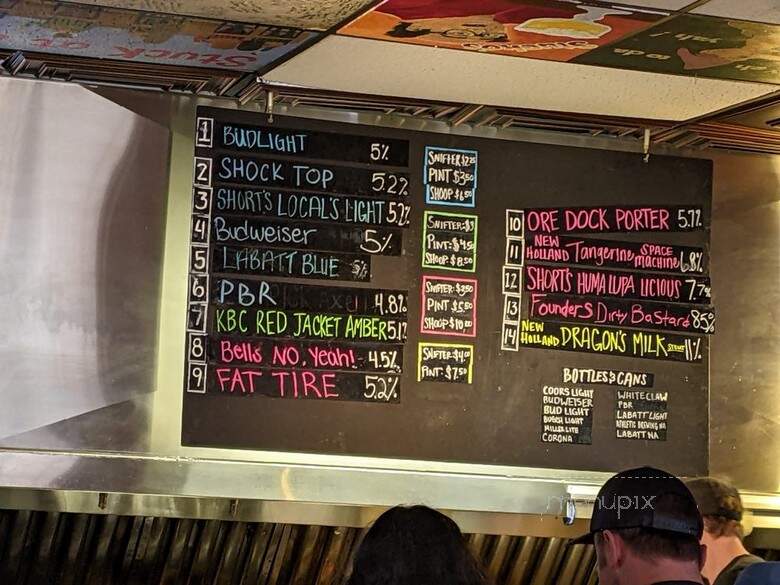 1 BUDLIGHT 5%
2 SHOCK TOP 5.2%
3 SHORT'S LOCAL'S LIGHT 5.2%
4 Budweiser 5%
5 LABATT BLUE 5%
6 PBR 4.8%
7 KBC RED JACKET AMBER 5.1%
8 Bells NO, Yeah! 4.5%
9 FAT TIRE 5.2%
SNIFFER $2.25
PINT $3.50
SHOOP $6.50
SNIFTER: $3
PINT: $4.50
SHOOP: $8.50
SNIFTER: $3.50
PINT $5.50
SHOOP $10.00
SNIFTER: $4.00
PINT: $7.50
10 ORE DOCK PORTER 5.7%
11 NEW HOLLAND Tangerine SPACE machine 6.8%
12 SHORT'S HUMA LUPA LICIOUS 7.7%
13 Founders Dirty BaStard 8.5%
14 NEW HOLLAND DRAGON'S MILK STOUT 11%
BOTTLES & CANS
COORS LIGHT
BUDWEISER
BUD LIGHT
BUSCH LIGHT
MILLER LITE
CORONA
WHITE CLAW
PBR
LABATT LIGHT
ATHLETIC BREWING NA
LABATT NA
Stuck at
menupix